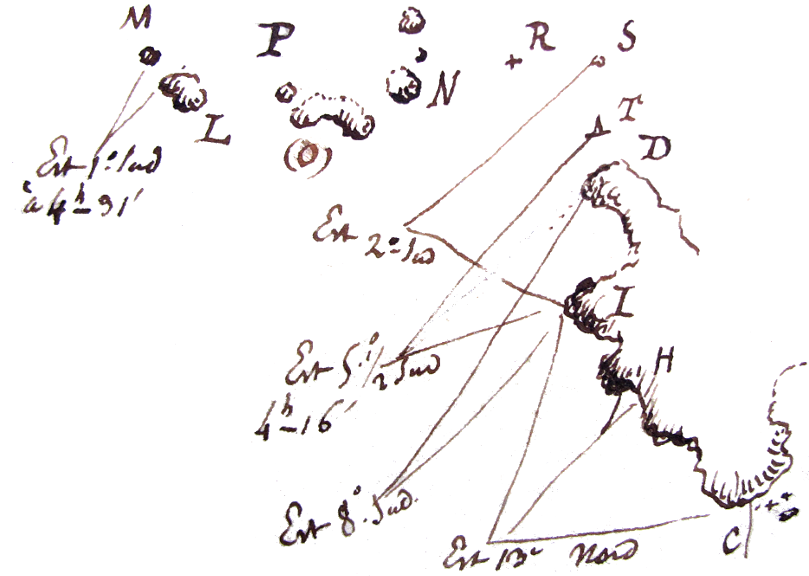 M
P
R
S
N
L
T
(O)
D
Est 1° Sud
à 4h-31'
Est 2° Sud
I
Est 5°1/2 Sud
4h-16'
H
Est 8° Sud.
Est 13° Nord
C